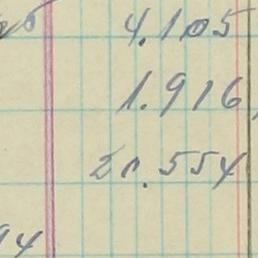 4.105
1.916
20.554
94